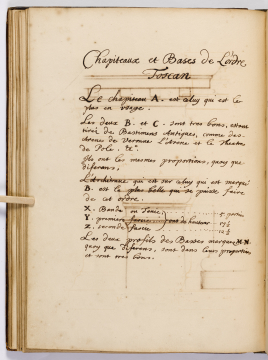 Chapiteaux et Bases de L'ordre
Toscan
Le chapiteau A. est celuy qui est le
plus en usage.
Les deux B. et C. sont tres bons, estant
tirez de Bastimens Antiques, comme des
Arenes de Veronne et le Theatre
de Pole. &c.
Ils ont les mesmes proportions, quoy que
diferens.
L'Architrave qui est sur celuy qui est marqué
B. est la plus belle qui se puisse faire
de cet ordre.
X. Bande ou Tenie 5 partie
Y. premiere fascie ont de hauteur 17½
Z. seconde fascie 12½
Les deux profils des Basses marquez
quoy que diferens, sont dans leurs proportions
et sont tres bons.